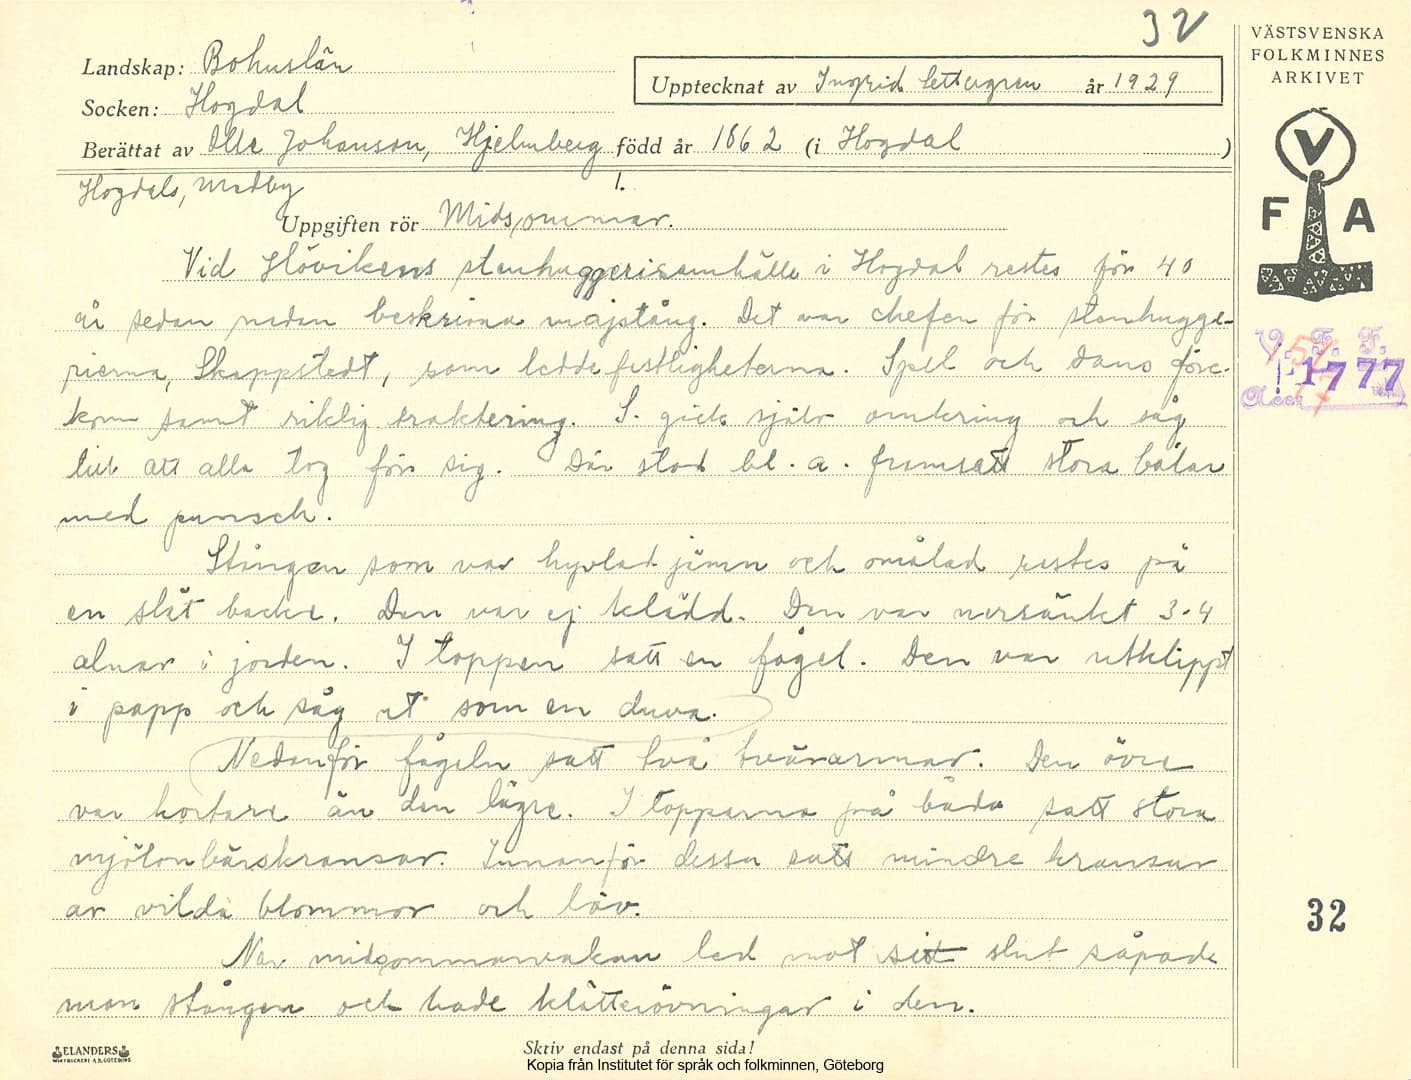 32
VÄSTSVENSKA
FOLKMINNES
ARKIVET
Landskap: Bohuslän
Upptecknat av Ingrid Settergren år 1929
Socken: Hogdal
Berättat av Olle Johanson, Hjelmberg född år 1862 (i Hogdal)
Hogdals, Medby 1.
Uppgiften rör Midsommar.
V
F A
Vid Hövikens stenhuggerisamhälle i Hogdal restes för 40
år sedan nedan beskrivna majstång. Det var chefen för stenhugge-
rierna, Skappstedt, som ledde festligheterna. Spel och dans före-
kom samt riklig traktering. S. gick själv omkring och såg
till att alla tog för sig. Där stod bl. a. framsatt stora bålar
med punsch.
V. F. F.
1777
Acc.
Stången som var hyvlad jämn och omålad restes på
en slät backe. Den var ej klädd. Den var nersänkt 3-4
alnar i jorden. I toppen satt en fågel. Den var utklippt
i papp och såg ut som en duva.
Nedanför fågeln satt två tvärarmar. Den övre
var kortare än den lägre. I topparna på båda satt stora
mjölonbärskransar. Innanför dessa satt mindre kransar
av vilda blommor och löv.
32
När midsommarvakan led mot sitt slut såpade
man stången och hade klätterövningar i den.
ELANDERS
Skriv endast på denna sida!
Kopia från Institutet för språk och folkminnen, Göteborg